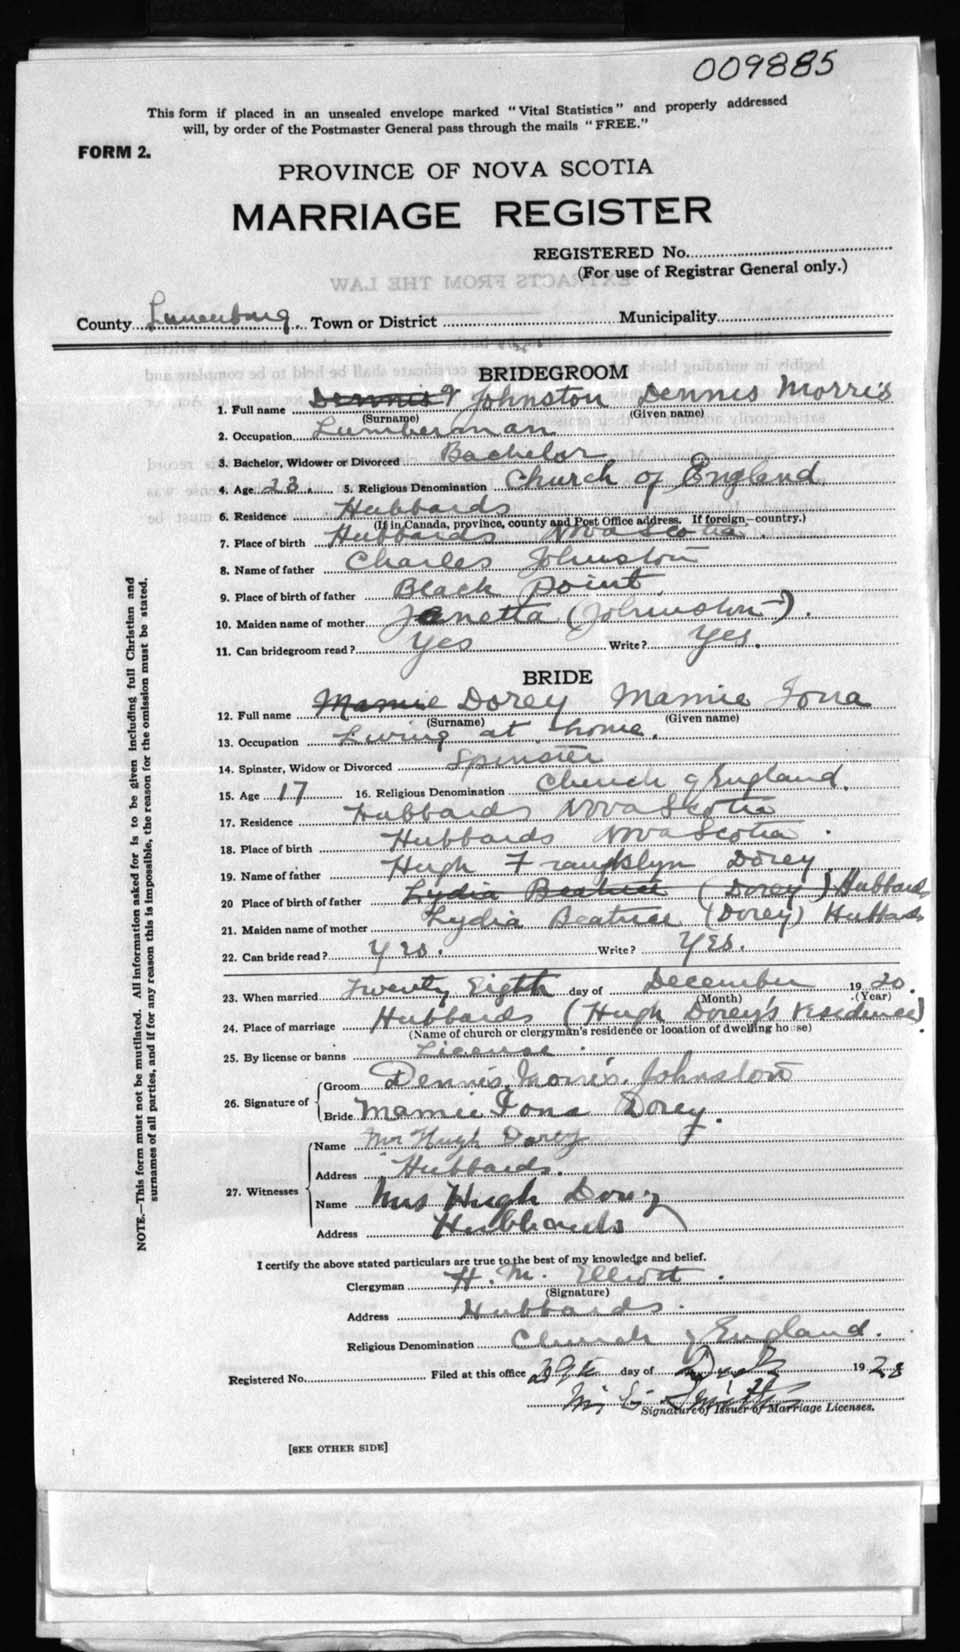 009885
This form if placed in an unsealed envelope marked "Vital Statistics" and properly addressed
will, by order of the Postmaster General pass through the mails "FREE."
FORM 2.
PROVINCE OF NOVA SCOTIA
MARRIAGE REGISTER
REGISTERED No.
(For use of Registrar General only.)
EXTRACTS FROM THE LAW
County Lunenburg Town or District Municipality
BRIDEGROOM
1. Full name Dennis Johnston Dennis Morris
(Surname) (Given name)
2. Occupation Lumberman
3. Bachelor, Widower or Divorced Bachelor
4. Age 23 5. Religious Denomination Church of England
6. Residence Hubbards
(If in Canada, province, county and Post Office address. If foreign—country.)
7. Place of birth Hubbards Nova Scotia.
8. Name of father Charles Johnston
9. Place of birth of father Black Point.
10. Maiden name of mother Janetta (Johnston).
11. Can bridegroom read? Yes Write? Yes.
BRIDE
12. Full name Mamie Dorey Mamie Iona
(Surname) (Given name)
13. Occupation Living at home.
14. Spinster, Widow or Divorced Spinster
15. Age 17 16. Religious Denomination Church of England.
17. Residence Hubbards Nova Scotia
18. Place of birth Hubbards Nova Scotia.
19. Name of father Hugh Dorey
20 Place of birth of father Lydia Beatrice (Dorey) Hubbards
21. Maiden name of mother Lydia Beatrice (Dorey) Hubbards
22. Can bride read? Yes. Write? Yes.
23. When married Twenty Eighth day of December 1920.
(Month) (Year)
24. Place of marriage Hubbards (Hugh Dorey's Residence).
(Name of church or clergyman's residence or location of dwelling house)
25. By license or banns License.
26. Signature of
Groom Dennis Morris Johnston
Bride Mamie Iona Dorey.
27. Witnesses
Name Mr Hugh Dorey
Address Hubbards.
Name Mrs Hugh Dorey
Address Hubbards
I certify the above stated particulars are true to the best of my knowledge and belief.
Clergyman H. M. Elliott.
(Signature)
Address Hubbards.
Religious Denomination Church of England.
Registered No. Filed at this office 29th day of 1928
Signature of Issuer of Marriage Licenses.
[SEE OTHER SIDE]
NOTE.—This form must not be mutilated. All information asked for is to be given including full Christian and
surnames of all parties, and if for any reason this is impossible, the reason for the omission must be stated.